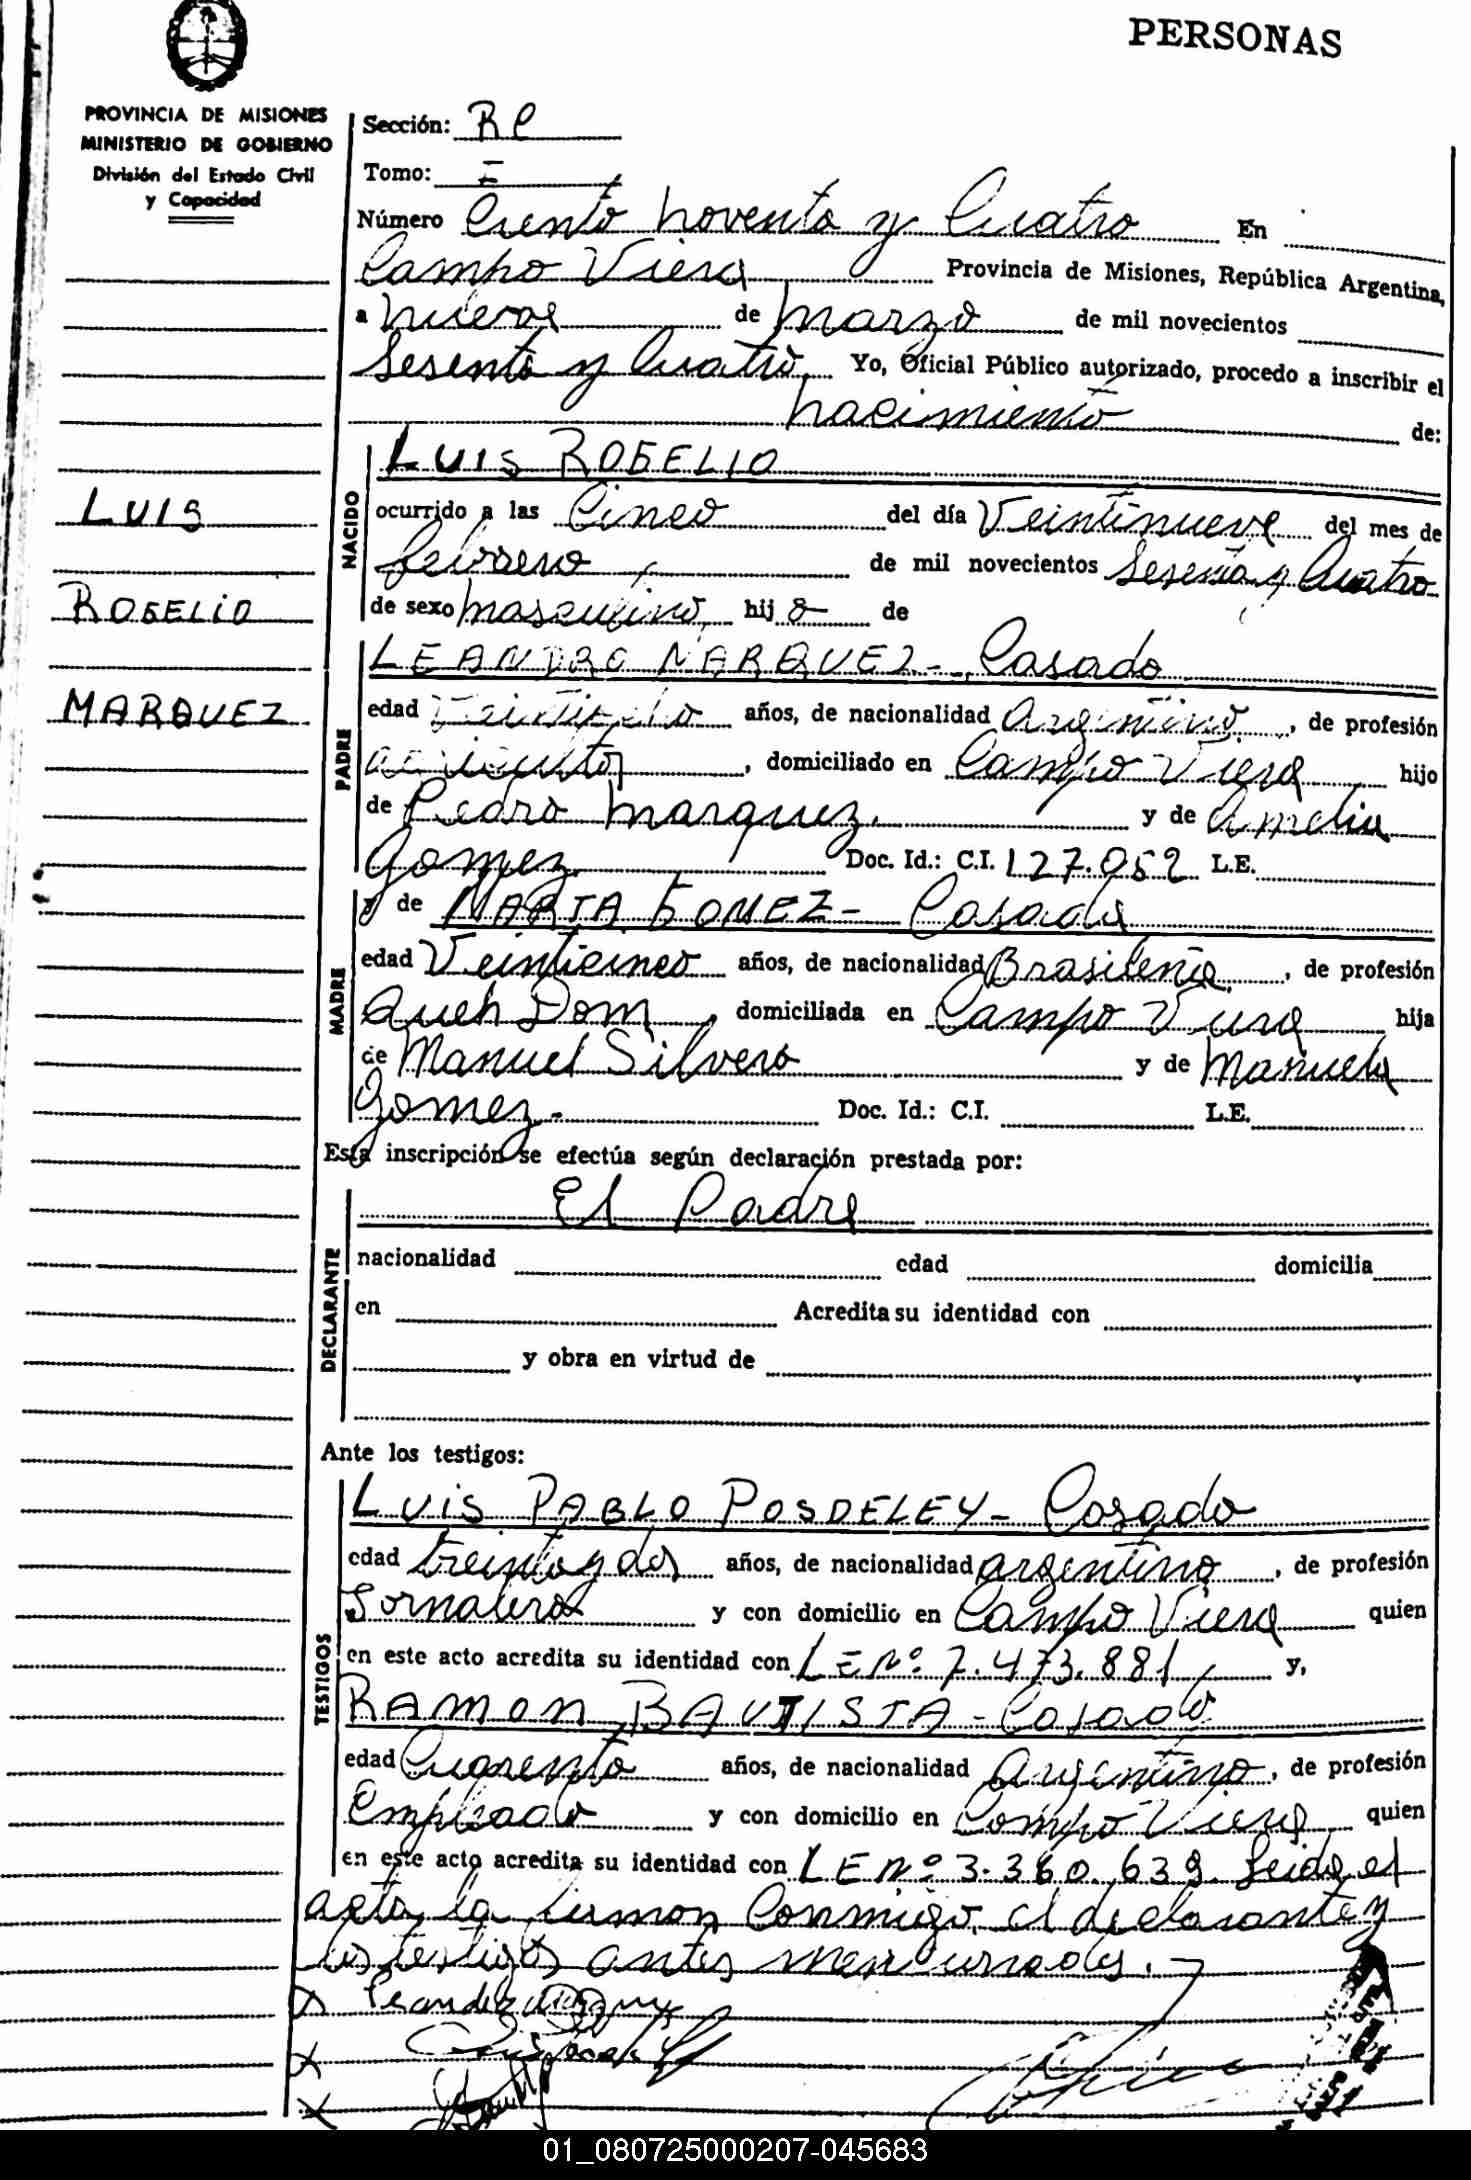 PERSONAS
PROVINCIA DE MISIONES
MINISTERIO DE GOBIERNO
División del Estado Civil
y Capacidad
LUIS
ROGELIO
MARQUEZ
Sección: RC
Tomo: I
Número Ciento noventa y Cuatro En
Campo Viera Provincia de Misiones, República Argentina,
a nueve de marzo de mil novecientos
Sesenta y Cuatro Yo, Oficial Público autorizado, procedo a inscribir el
nacimiento de:
NACIDO
LUIS ROGELIO
ocurrido a las Cinco del día Veintinueve del mes de
febrero de mil novecientos Sesenta y Cuatro
de sexo masculino hij o de
PADRE
LEANDRO MARQUEZ - Casado
edad años, de nacionalidad Argentino, de profesión
agricultor, domiciliado en Campo Viera hijo
de Pedro Marquez y de Amelia
Gomez Doc. Id.: C.I. 127.052 L.E.
MADRE
y de MARTA GOMEZ - Casada
edad Veinticinco años, de nacionalidad Brasileña, de profesión
Queh Dom, domiciliada en Campo Viera hija
de Manuel Silvero y de Manuela
Gomez.- Doc. Id.: C.I. L.E.
Esta inscripción se efectúa según declaración prestada por:
DECLARANTE
El Padre
nacionalidad edad domicilia
en Acredita su identidad con
y obra en virtud de
Ante los testigos:
TESTIGOS
LUIS PABLO POSDELEY - Casado
edad treinta y dos años, de nacionalidad argentino, de profesión
Jornalero y con domicilio en Campo Viera quien
en este acto acredita su identidad con LE Nº 7.473.881, y,
RAMON BAUTISTA - Casado
edad Cuarenta años, de nacionalidad Argentino, de profesión
Empleado y con domicilio en Campo Viera quien
en este acto acredita su identidad con LE Nº 3.360.639. Leida el
acta, la firman Conmigo, el declarante y
los testigos antes mencionados.
01_080725000207-045683